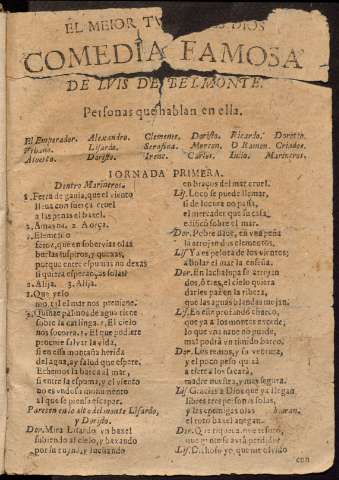 EL MEIOR TV DIOS
COMEDIA FAMOSA
DE LVIS DE BELMONTE.
Personas que hablan en ella.
El Emperador. Alexandro. Clemente. Doristo. Ricardo. Dorotto.
Vrbano. Lisardo. Serafina. Morcon. O Ramon. Criados.
Doristo. Irene. Carlos. Iulio. Marineros.
IORNADA PRIMERA.
Dentro Marineros.
que el viento
lleua con fuerça cruel
a las peñas el baxel.
2. Amayna. 2. A orça.
3. El
feroz, que en soberuias olas
burlas suspiros, y quexas,
porque entre espumas no dexas
si quiera esperãças solas?
2. Alija. 3. Alija.
2. Que yelo
mortal el mar nos preuiene?
3. Quinze palmos de agua tiene
sobre la carlinga. 1. El cielo
nos socorra. 1. El que pudiere
procure saluar la vida,
si en essa montaña herida
del agua, ay salud que espere.
Echemos la barca al mar,
si entre la espuma, y el viento
no es vndoso monumento
al que se piensa escapar.
Parecen en lo alto del monte Lisardo,
y Doristo.
Dor. Mira Lisardo vn baxel
subiendo al cielo, y baxando
por su y luchando
en braços del mar cruel.
Lis. Loco se puede llamar,
si de locura no passa,
el mercader que su casa
edificò sobre el mar.
Dor. Pobre naue, en vna peña
la arrojan dos elementos,
Lis. Ya es pelota de los vientos;
a bolar el mar la enseña.
Dor. En la chalupa se arrojan
dos, ò tres, el cielo quiera
darles paz en la ribera,
que las aguas blandas mojan.
Lis. En este profundo charco,
que ya a los montes excede,
lo que vna naue no puede,
mal podrà vn timido barco.
Dor. Los remos, y su ventura,
y el poco peso quizà
a tierra los sacarà,
madre mas fixa, y mas segura.
Lis. Gracias a Dios que ya llegan
libres tres personas solas,
y las enemigas olas
el roto baxel anegan.
Dor. Que
que gente se avrà perdido?
Lis. Dichoso yo, que he viuido
con